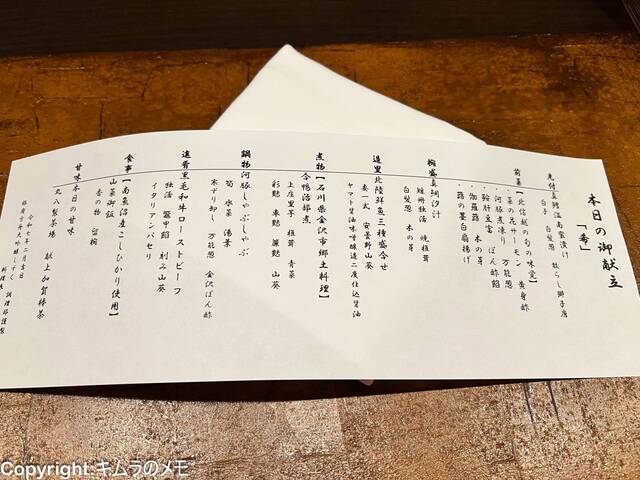 本日の御献立
「希」
先付 真鱈温南蛮漬け
白子 白髪葱 散らし獅子唐
前菜【北信越の旬の味覚】
・菜の花サーモン 黄身酢
・河豚煮凍り 万能葱
・鮟肝豆富 ぽん酢餡
・伽羅蕗 木の芽
・蕗の薹白扇揚げ
椀盛 真鯛汐汁
短冊独活 焼椎茸
白髪葱 木の芽
造里 北陸鮮魚三種盛合せ
妻一式 安曇野山葵
ヤマト醤油味噌醸造二度仕込醤油
煮物【石川県金沢市郷土料理】
合鴨治部煮
上庄里芋 椎茸 青菜
彩麩 車麩 簾麩 山葵
鍋物 河豚しゃぶしゃぶ
筍 水菜 湯葉
寒ずり卸し 万能葱 金沢ぽん酢
進肴 黒毛和牛ローストビーフ
独活 鼈甲餡 刻み山葵
イタリアンパセリ
食事【南魚沼産こしひかり使用】
山菜御飯
香の物 留椀
甘味 本日の甘味
丸八製茶場 献上加賀棒茶
令和 年二月吉日
料理長 調理部謹製
Copyright:キムラのメモ